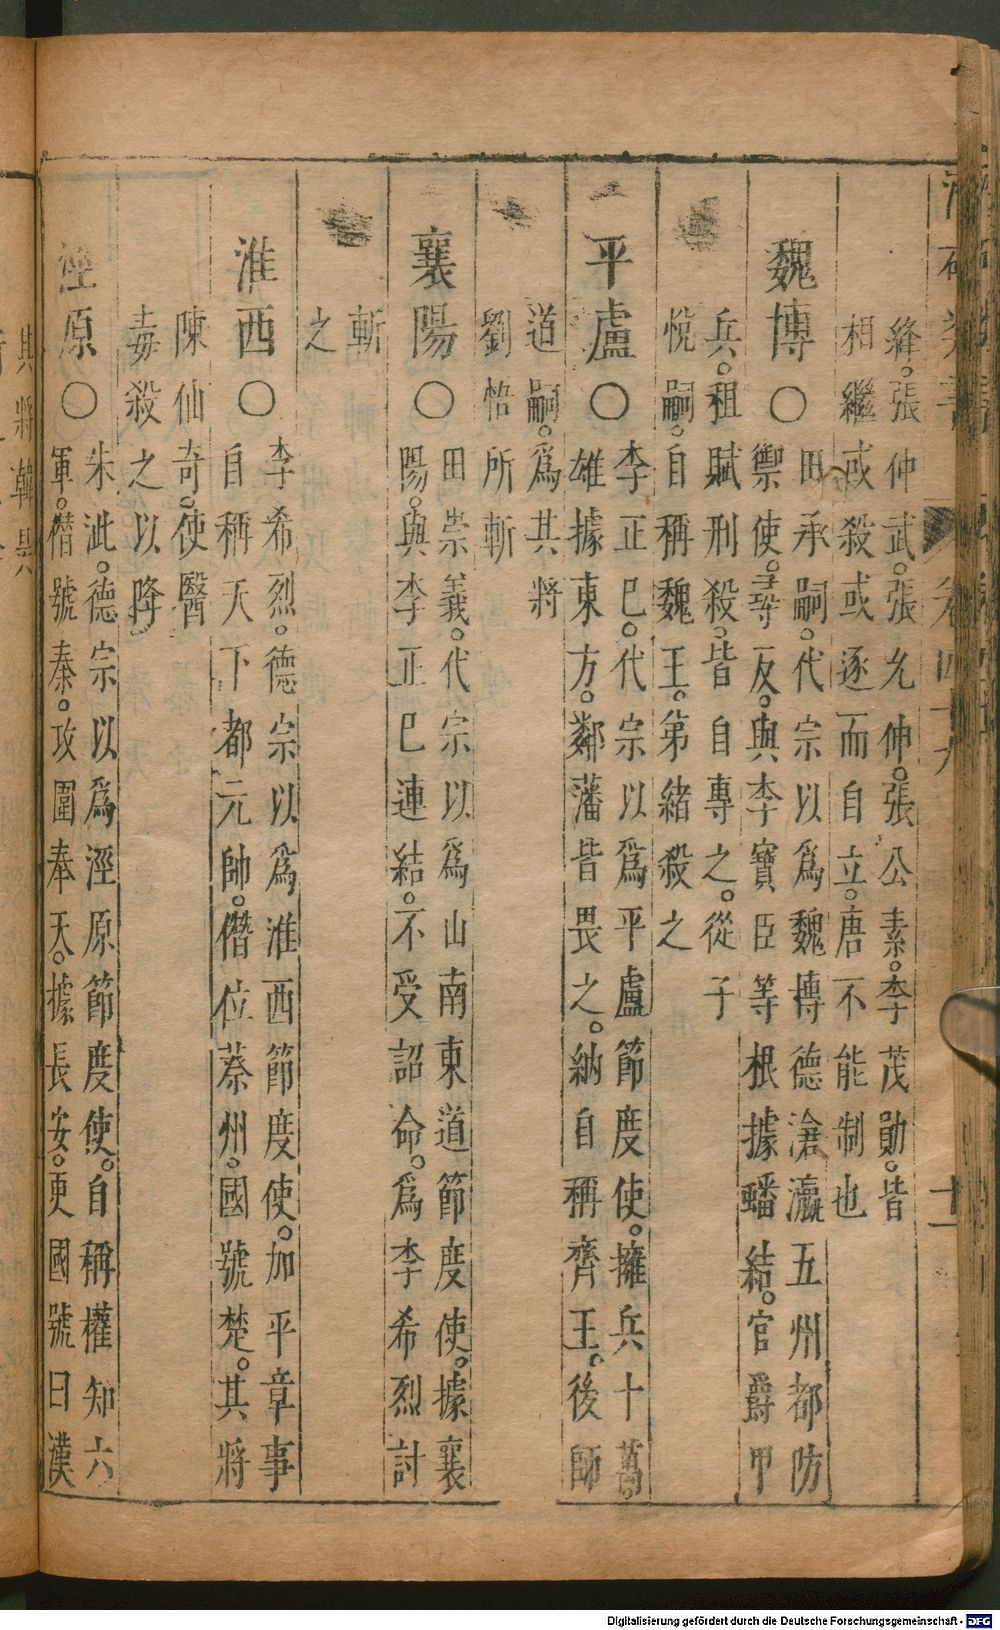 卷四十九
十一
縫。張仲武。張允伸。張公素。李茂勛。皆
相繼或殺或逐而自立。唐不能制也
魏博〇
田承嗣。代宗以爲魏博德滄瀛五州都防
禦使。尋反。與李寶臣等根據蟠結。官爵甲
兵。租賦刑殺。皆自專之。從子
悅嗣。自稱魏王。第緒殺之
平盧〇
李正巳。代宗以爲平盧節度使。擁兵十萬。
雄據東方。鄰藩皆畏之。納自稱齊王。後師
道嗣。爲其將
劉悟所斬
襄陽〇
田崇義。代宗以爲山南東道節度使。據襄
陽。與李正巳連結。不受詔命。爲李希烈討
斬
之
淮西〇
李希烈。德宗以爲淮西節度使。加平章事
自稱天下都元帥。僭位蔡州。國號楚。其將
陳仙奇。使醫
毒殺之以降
涇原〇
朱泚。德宗以爲涇原節度使。自稱權知六
軍。僭號秦。攻圍奉天。據長安。更國號曰漢
其將韓旻
Digitalisierung gefördert durch die Deutsche Forschungsgemeinschaft - DFG